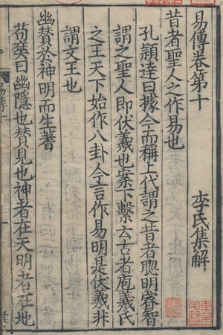 易傳卷第十
李氏集解
昔者聖人之作易也
孔穎達曰據今而稱上代謂之昔者聰明睿智
謂之聖人即伏羲也案下繫云古者庖羲氏
之王天下始作八卦今言作易明是伏羲非
謂文王也
幽贊於神明而生蓍
荀爽曰幽隱也贊見也神者在天明者在地